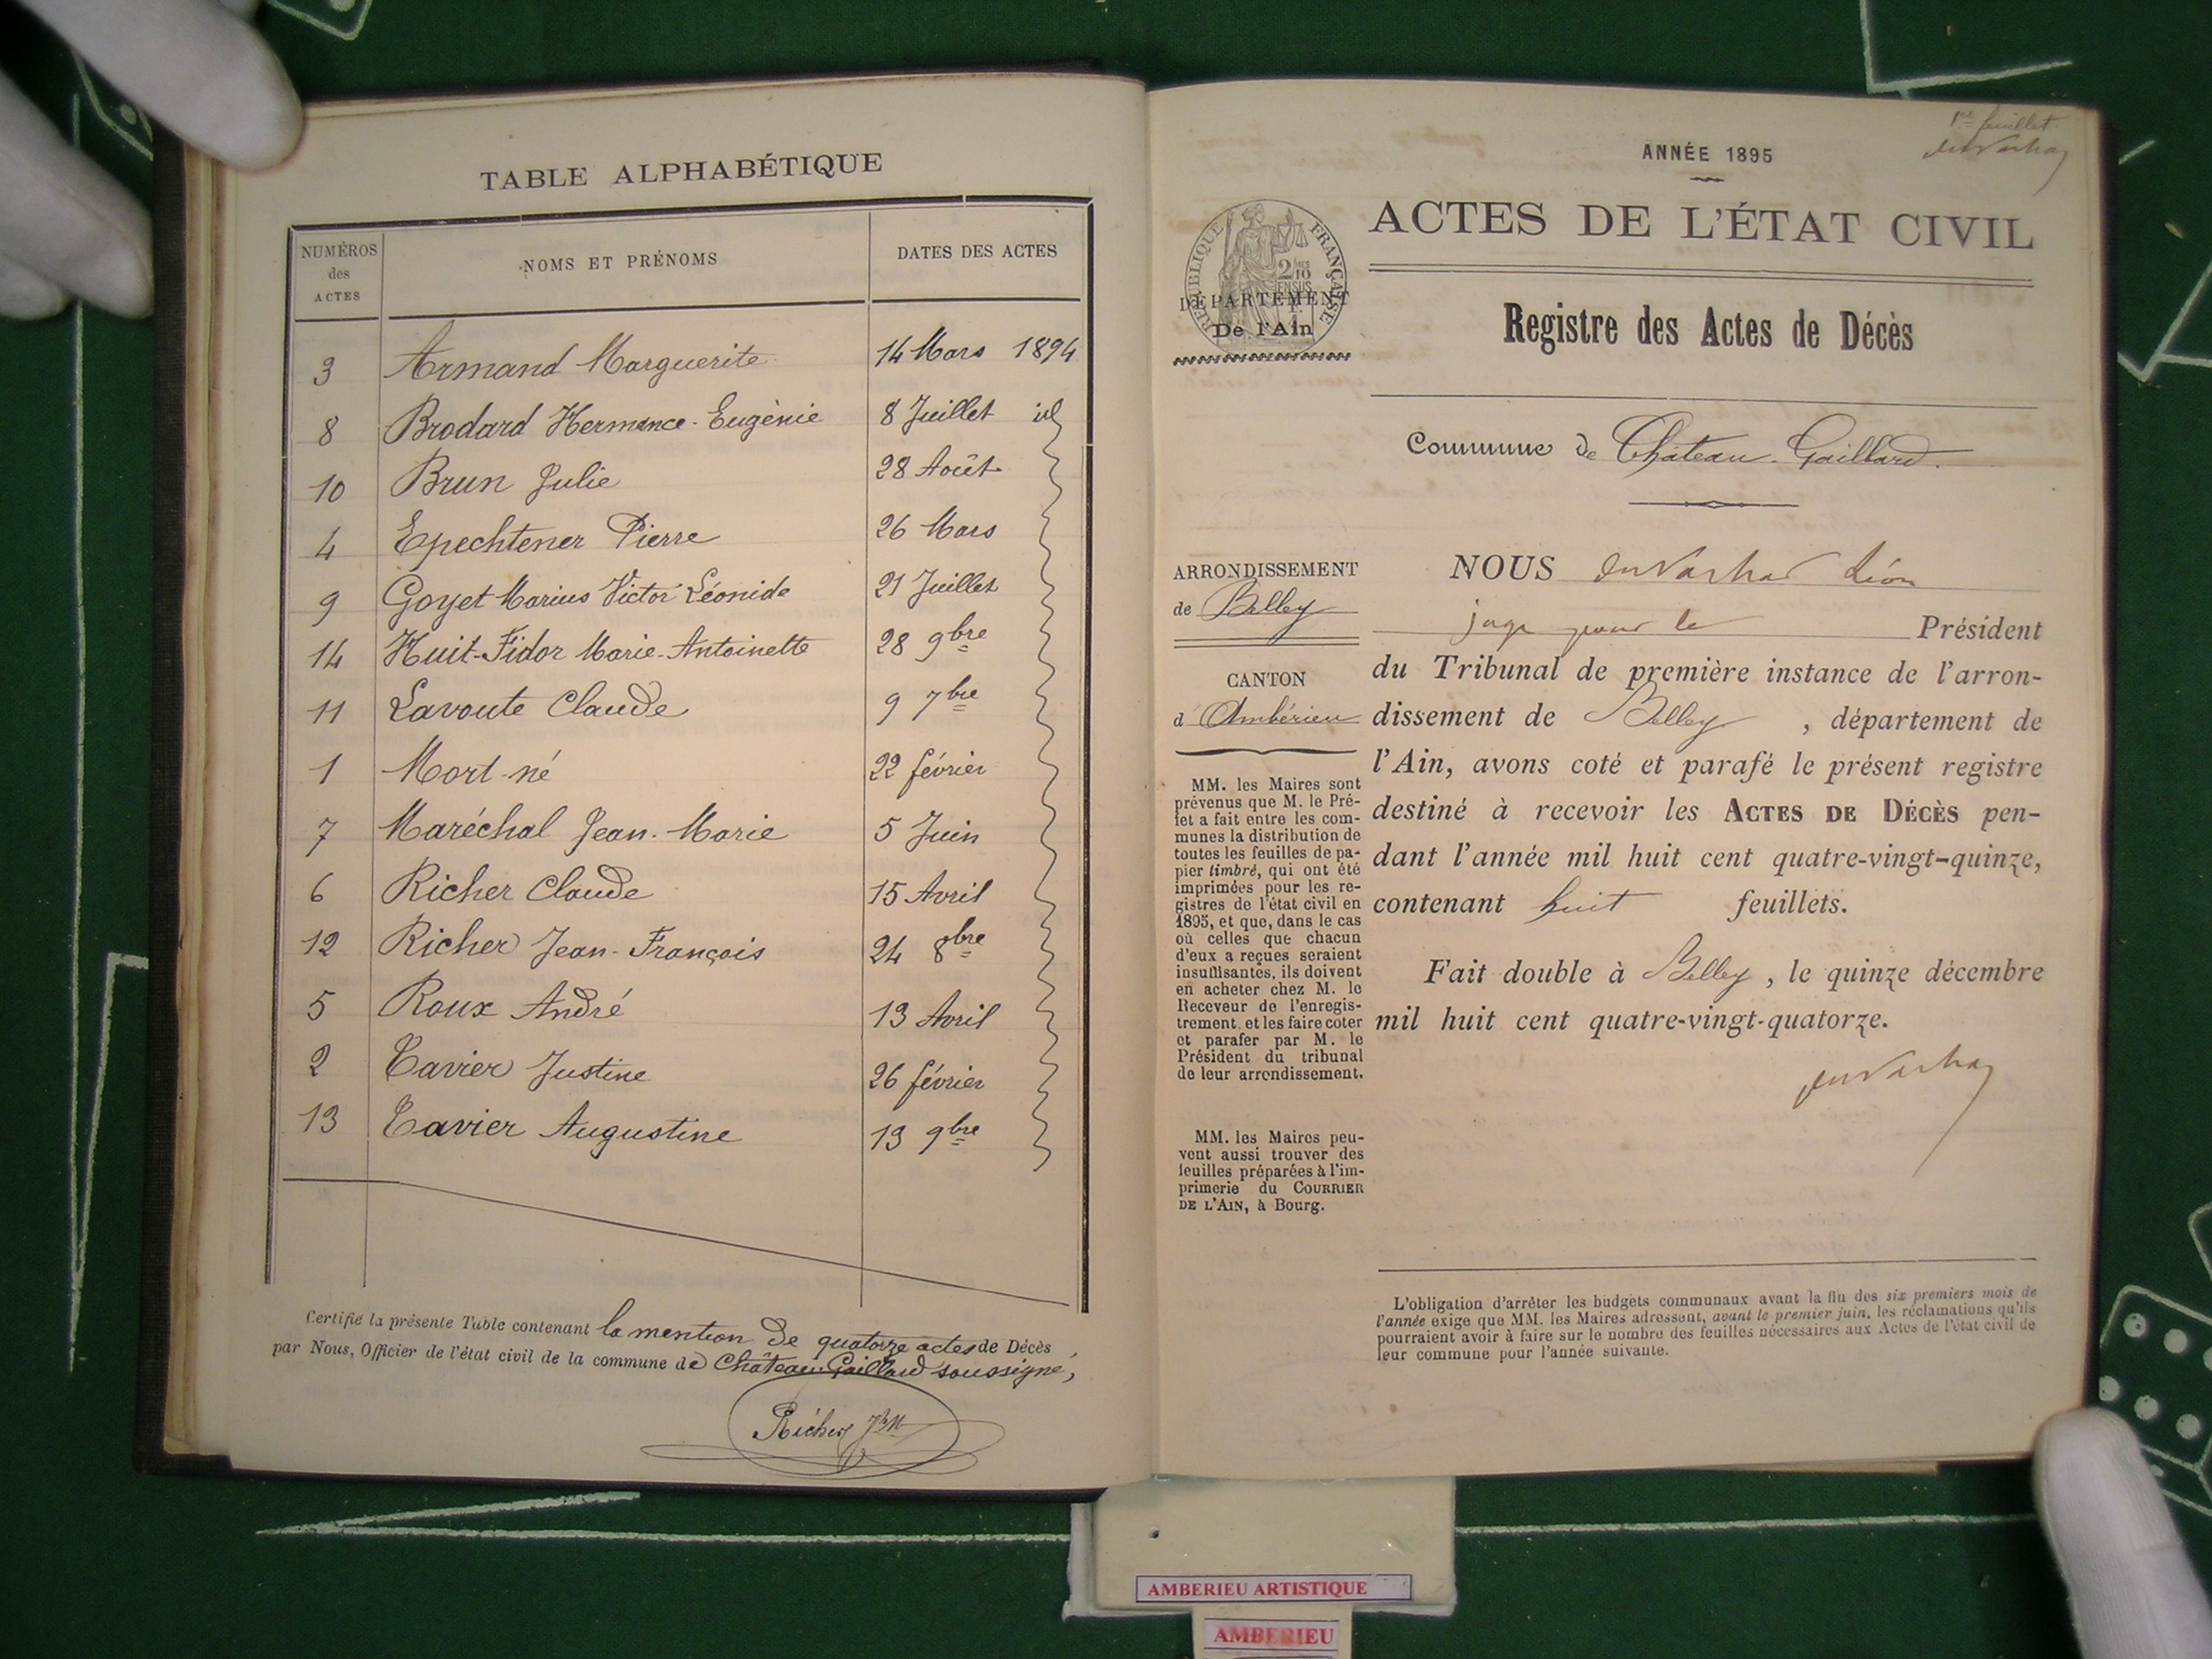 TABLE ALPHABÉTIQUE
NUMÉROS des ACTES
NOMS ET PRÉNOMS
DATES DES ACTES
3 Armand Marguerite 14 Mars 1894
8 Brodard Hermence-Eugènie 8 Juillet id
10 Brun Julie 28 Août
4 Epechtener Pierre 26 Mars
9 Goyet Marius Victor Léonide 21 Juillet
14 Huit-Fidor Marie-Antoinette 28 9bre
11 Lavoute Claude 9 7bre
1 Mort-né 22 février
7 Maréchal Jean-Marie 5 Juin
6 Richer Claude 15 Avril
12 Richer Jean-François 24 8bre
5 Roux André 13 Avril
2 Tavier Justine 26 février
13 Tavier Augustine 13 9bre
Certifié la présente Table contenant la mention de quatorze actes de Décès
par Nous, Officier de l'état civil de la commune de Château-Gaillard soussigné,
Richer
1er feuillet
ANNÉE 1895
ACTES DE L'ÉTAT CIVIL
RÉPUBLIQUE FRANÇAISE
2/10 EN SUS
DÉPARTEMENT
De l'Ain
Registre des Actes de Décès
Commune de Château-Gaillard.
ARRONDISSEMENT
de Belley
CANTON
d'Ambérieu
MM. les Maires sont
prévenus que M. le Pré-
fet a fait entre les com-
munes la distribution de
toutes les feuilles de pa-
pier timbré, qui ont été
imprimées pour les re-
gistres de l'état civil en
1895, et que, dans le cas
où celles que chacun
d'eux a reçues seraient
insuffisantes, ils doivent
en acheter chez M. le
Receveur de l'enregis-
trement, et les faire coter
et parafer par M. le
Président du tribunal
de leur arrondissement.
MM. les Maires peu-
vent aussi trouver des
feuilles préparées à l'im-
primerie du COURRIER
DE L'AIN, à Bourg.
NOUS Léon
juge pour le Président
du Tribunal de première instance de l'arron-
dissement de Belley, département de
l'Ain, avons coté et parafé le présent registre
destiné à recevoir les ACTES DE DÉCÈS pen-
dant l'année mil huit cent quatre-vingt-quinze,
contenant huit feuillets.
Fait double à Belley, le quinze décembre
mil huit cent quatre-vingt-quatorze.
L'obligation d'arrêter les budgets communaux avant la fin des six premiers mois de
l'année exige que MM. les Maires adressent, avant le premier juin, les réclamations qu'ils
pourraient avoir à faire sur le nombre des feuilles nécessaires aux Actes de l'état civil de
leur commune pour l'année suivante.
AMBERIEU ARTISTIQUE
AMBERIEU